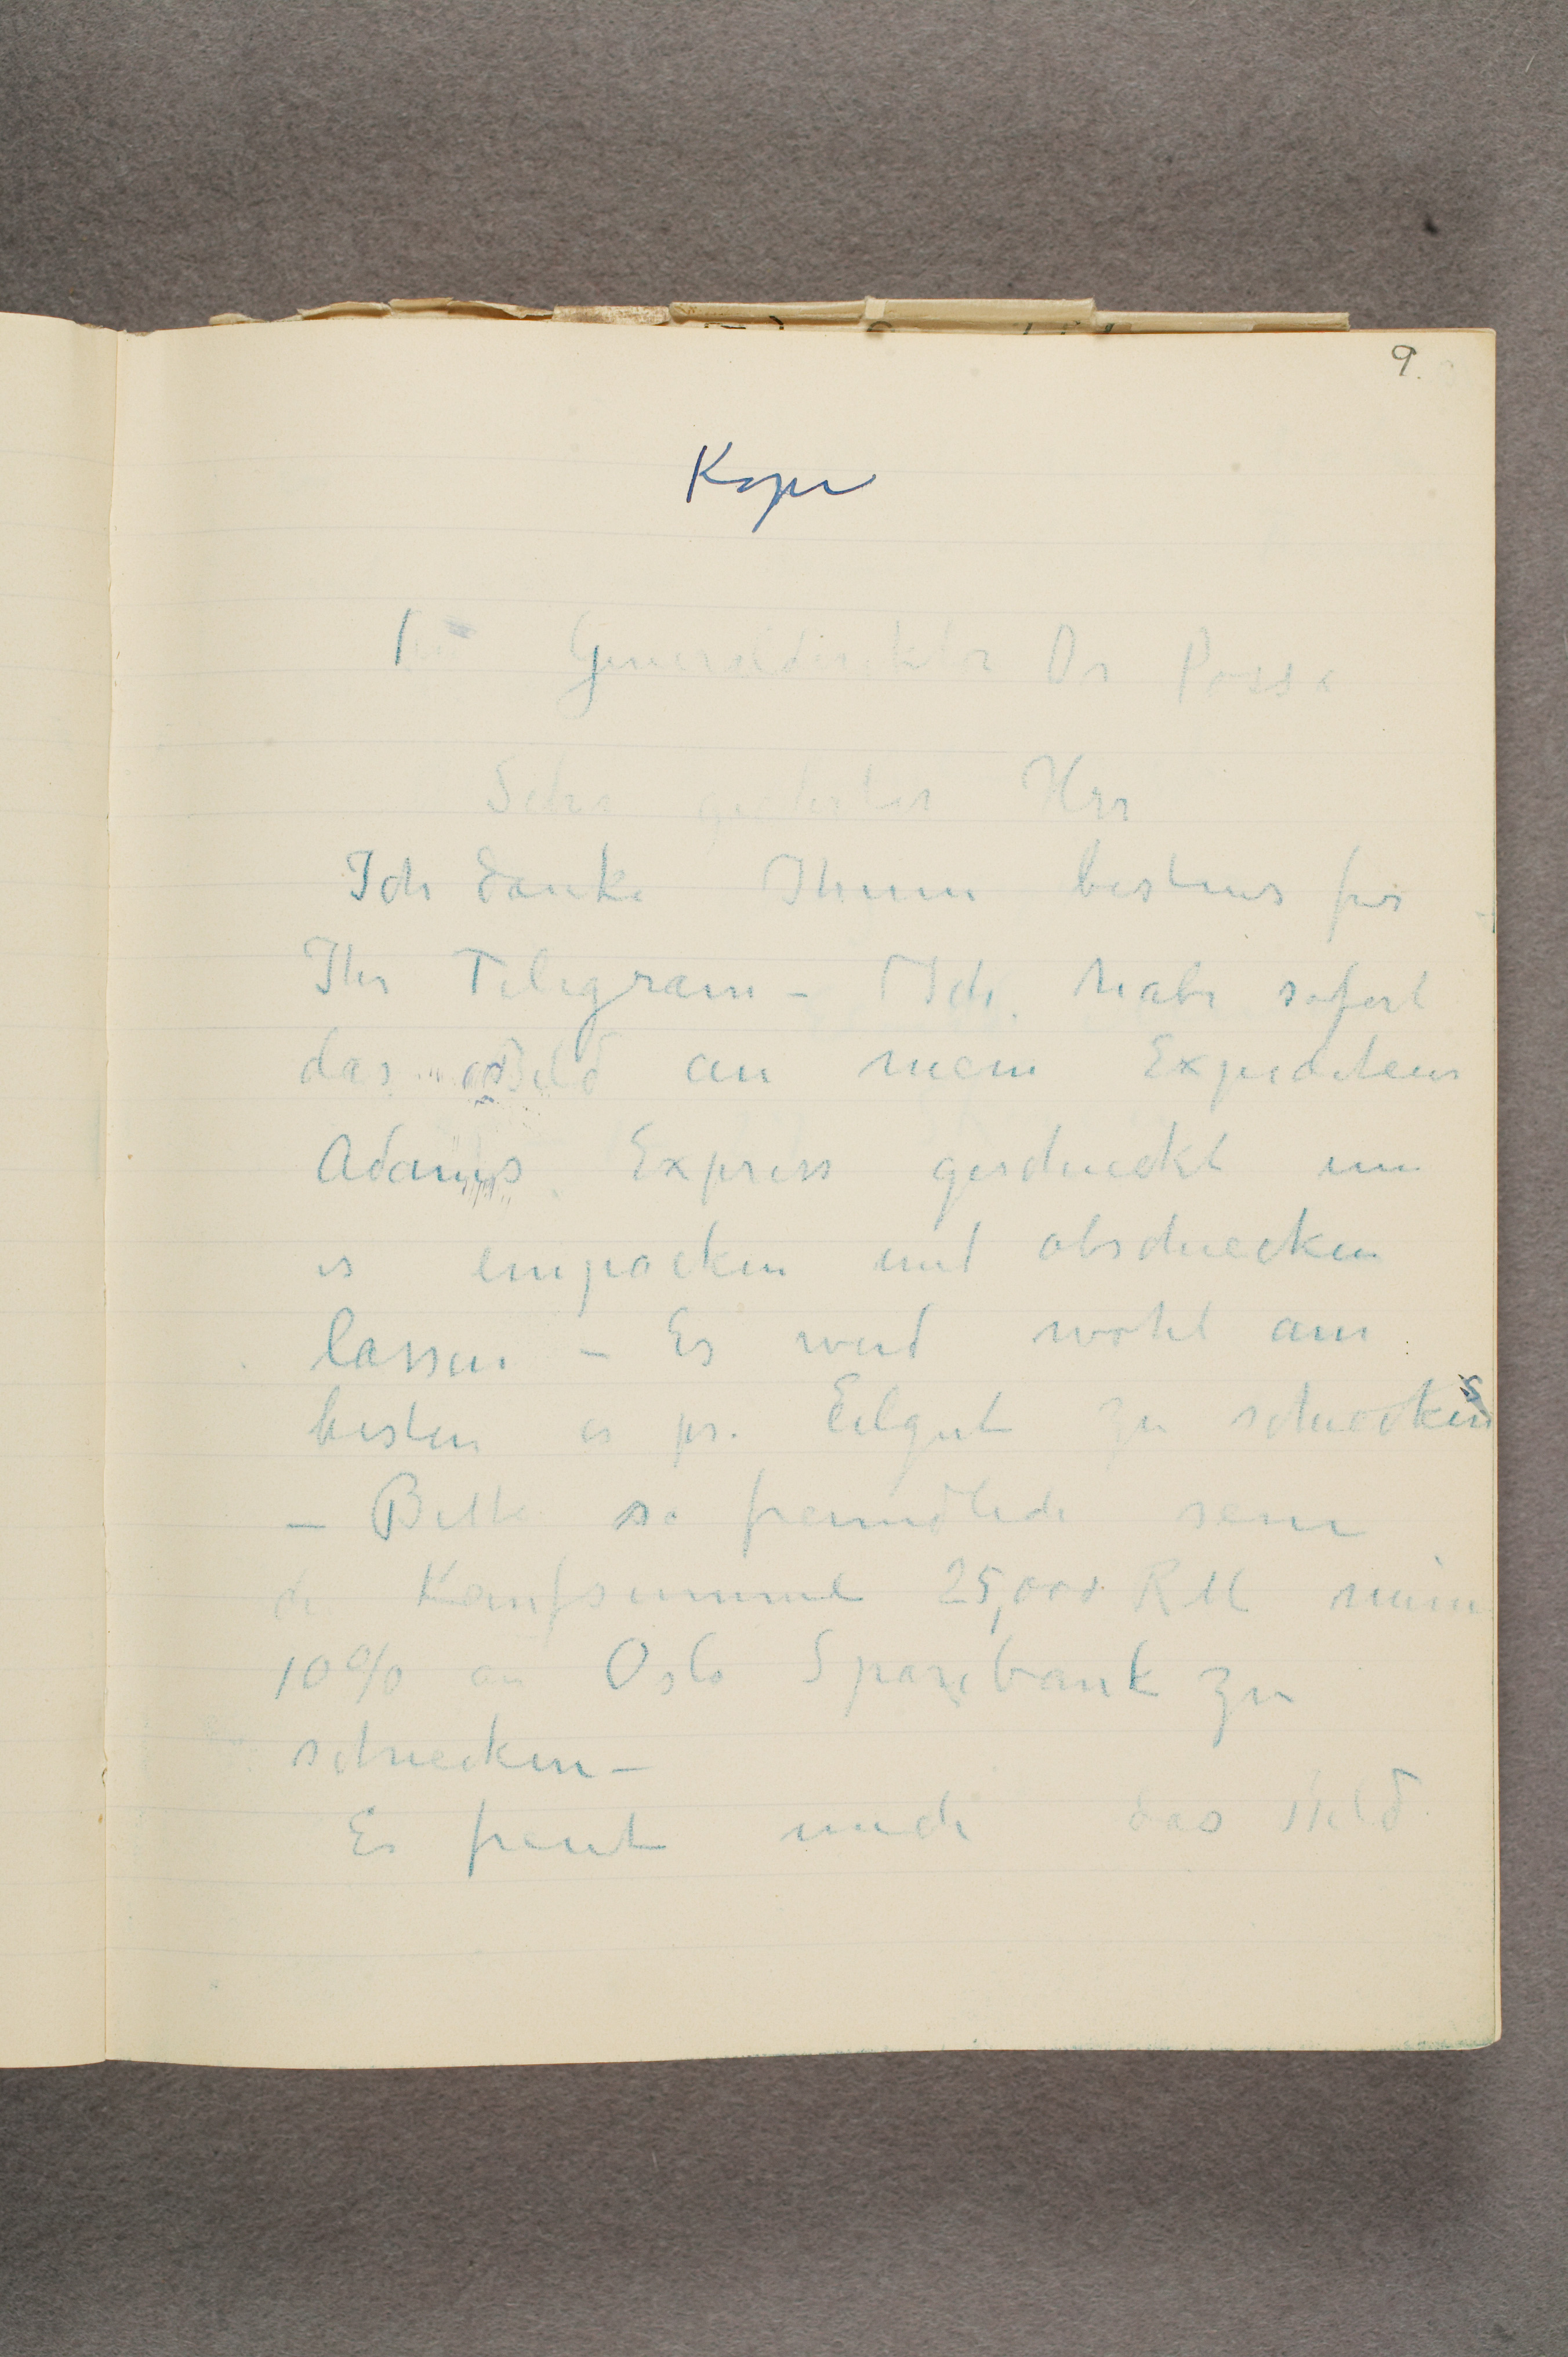 9.
Kopi
Generaldirektør Dr Posse
Sehr geehrter Herr
Ich danke Ihnen bestens für
Ihr Telegram – Ich habe sofort
das Bild an mein Expediteur
Adams Express geschieckt um
es einpacken und abschiecken
lassen – Es wird wohl am
besten es pr. Eilgut zu schiecken
– Bitte so freundlich sein
die Kaufsumme 25,000 RM minus
10% an Oslo Sparebank zu
schiecken –
Es freut mich das Bild